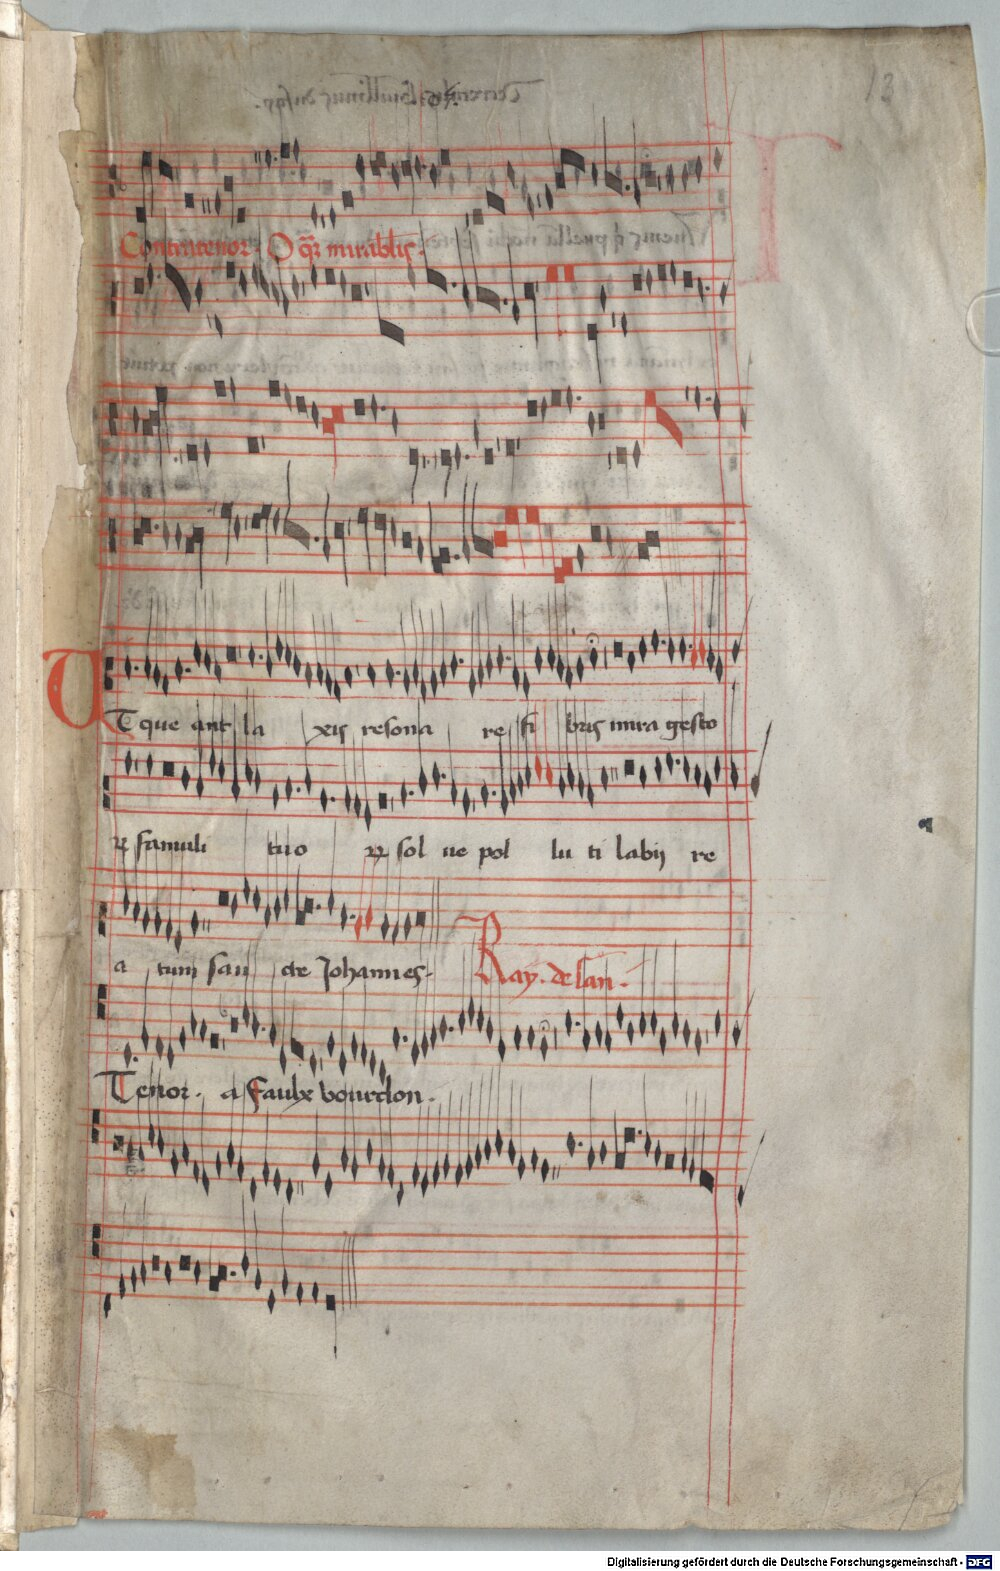 13
Contratenor. O q̄ʒ mirabilis.
UT que ant la xis resona re fi bris mira gesto
rꝫ famuli tuo rꝫ sol ue pol lu ti labij re
a tum san cte Johannes.
Ray. de lan.
Tenor. a Faulx bourdon.
Digitalisierung gefördert durch die Deutsche Forschungsgemeinschaft - DFG